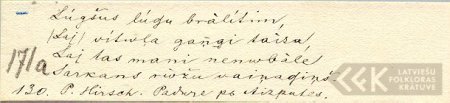 Lúgšus lúdu brālītim,
(Lai) vītola gaņgi taisa,
171a
Lai tas mani nenobāle
Sarkans rožu vaiņadziņš.
130. P. Hirsch. Padure pa Aizputes.
LATVIEŠU
FOLKLORAS
KRĀTUVE